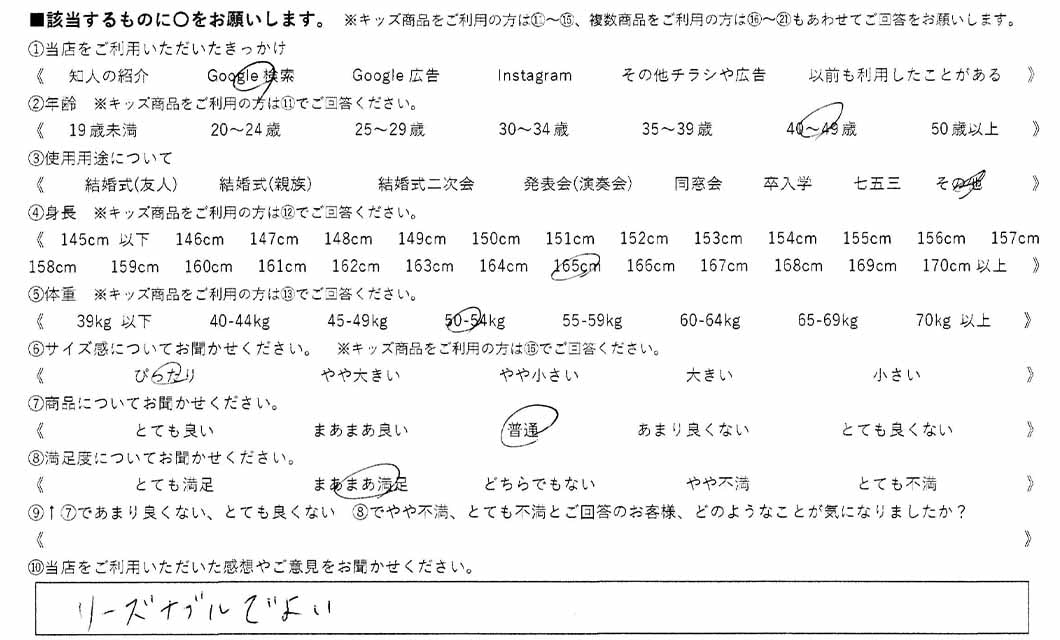 ■該当するものに〇をお願いします。 ※キッズ商品をご利用の方は⑪～⑮、複数商品をご利用の方は⑯～㉑もあわせてご回答をお願いします。
①当店をご利用いただいたきっかけ
《 知人の紹介 Google 検索 Google 広告 Instagram その他チラシや広告 以前も利用したことがある 》
②年齢 ※キッズ商品をご利用の方は⑪でご回答ください。
《 19歳未満 20～24歳 25～29歳 30～34歳 35～39歳 40～49歳 50歳以上 》
③使用用途について
《 結婚式(友人) 結婚式(親族) 結婚式二次会 発表会(演奏会) 同窓会 卒入学 七五三 その他 》
④身長 ※キッズ商品をご利用の方は⑫でご回答ください。
《 145cm 以下 146cm 147cm 148cm 149cm 150cm 151cm 152cm 153cm 154cm 155cm 156cm 157cm
158cm 159cm 160cm 161cm 162cm 163cm 164cm 165cm 166cm 167cm 168cm 169cm 170cm以上 》
⑤体重 ※キッズ商品をご利用の方は⑬でご回答ください。
《 39kg 以下 40-44kg 45-49kg 50-54kg 55-59kg 60-64kg 65-69kg 70kg 以上 》
⑥サイズ感についてお聞かせください。 ※キッズ商品をご利用の方は⑮でご回答ください。
《 ぴったり やや大きい やや小さい 大きい 小さい 》
⑦商品についてお聞かせください。
《 とても良い まあまあ良い 普通 あまり良くない とても良くない 》
⑧満足度についてお聞かせください。
《 とても満足 まあまあ満足 どちらでもない やや不満 とても不満 》
⑨↑⑦であまり良くない、とても良くない ⑧でやや不満、とても不満とご回答のお客様、どのようなことが気になりましたか？
《 》
⑩当店をご利用いただいた感想やご意見をお聞かせください。
リーズナブルでよい